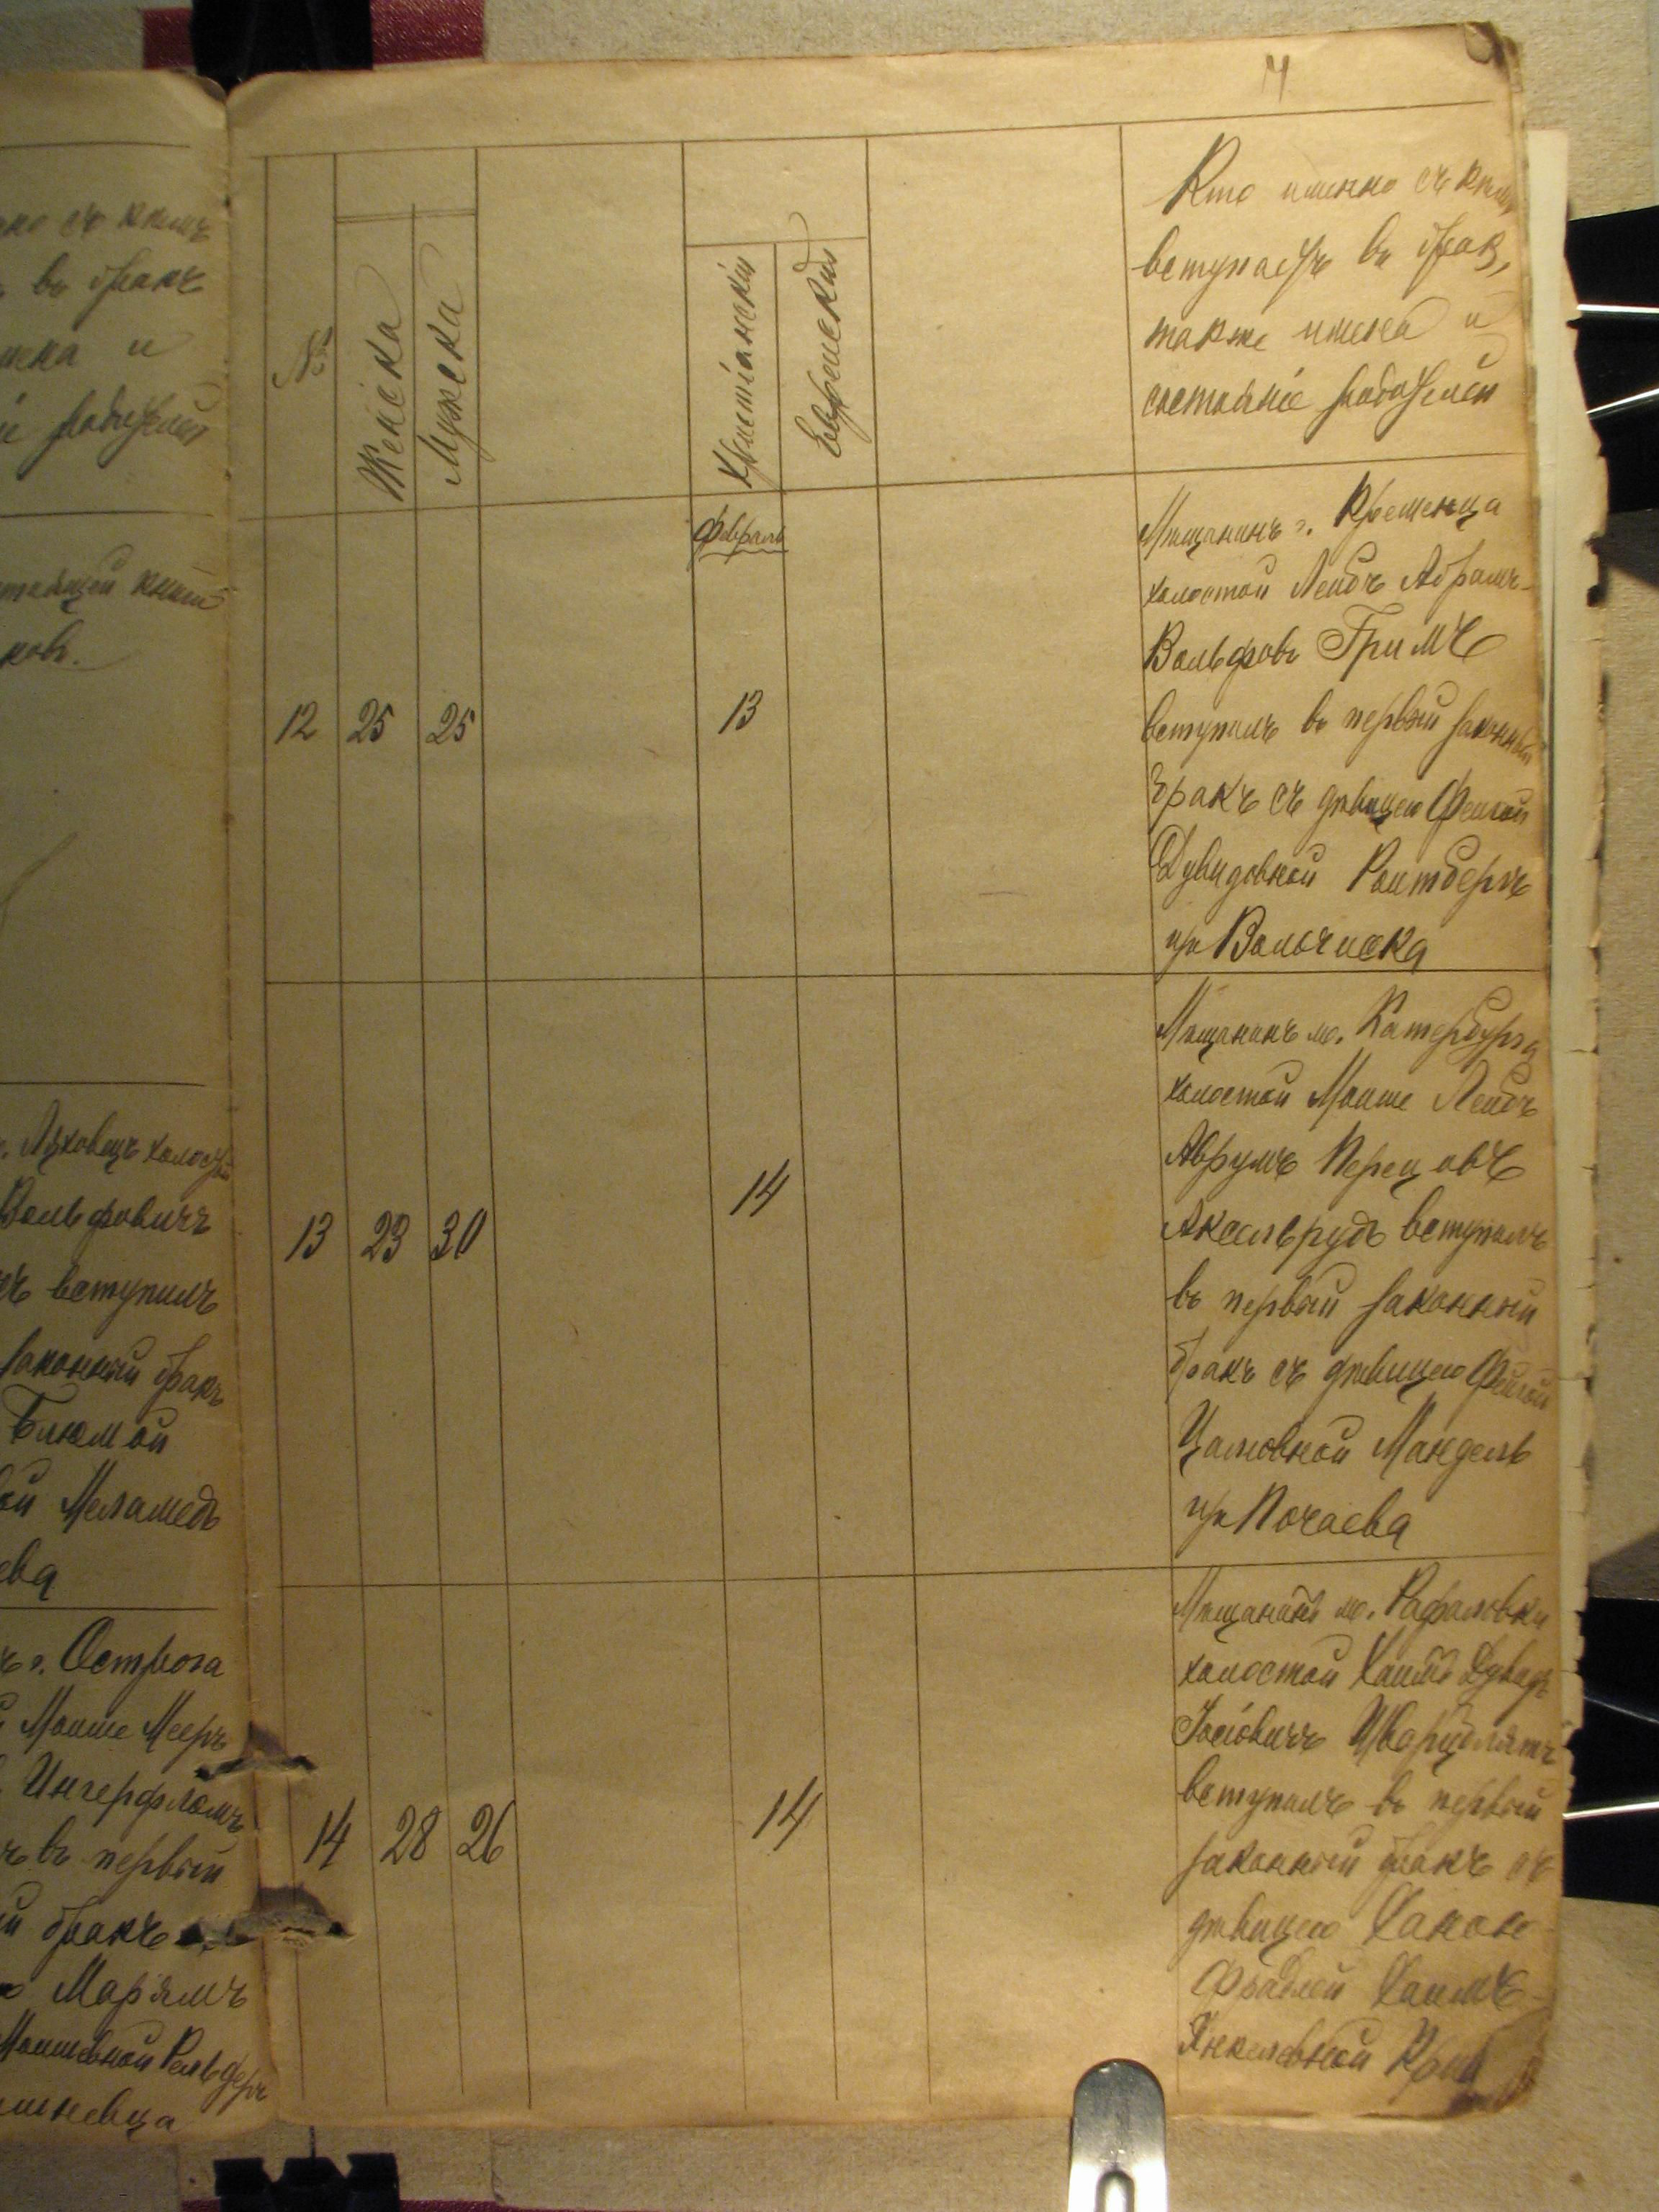 ко съ кѣмъ
въ бракъ
и
родителей
книги
ковъ.
Ляховецъ холостой
Вольфовичъ
вступилъ
законный бракъ
Блюмой
ой Меламедъ
ева
г. Острога
Моише Мееръ
Ингерфломъ
въ первый
й бракъ
Маріямъ
Моишевной
шневца
№
Женска
Мужска
Христіанскій
Еврейскій
Кто именно съ кѣмъ
вступаетъ въ бракъ,
также имена и
состояніе родителей
12
25
25
Февраль
13
Мѣщанинъ г. Кременца
холостой Лейбъ Абрамъ-
Вольфовъ Гримъ
вступилъ въ первый законный
бракъ съ дѣвицею Фейгой
Дувидовной Ройтбергъ
из Волочиска
13
23
30
14
Мѣщанинъ м. Катербурга
холостой Моише Лейбъ
Аврумъ Перецовъ
Аксельрудъ вступилъ
въ первый законный
бракъ съ дѣвицею Фейгой
Цалювной Мандель
из Почаева
14
28
26
14
Мѣщанинъ м. Рафаловки
холостой Хаимъ Дувидъ
Іосіовичъ
вступилъ въ первый
законный бракъ съ
дѣвицею Ханою
Фрадлей Хаимъ-
Янкелевной